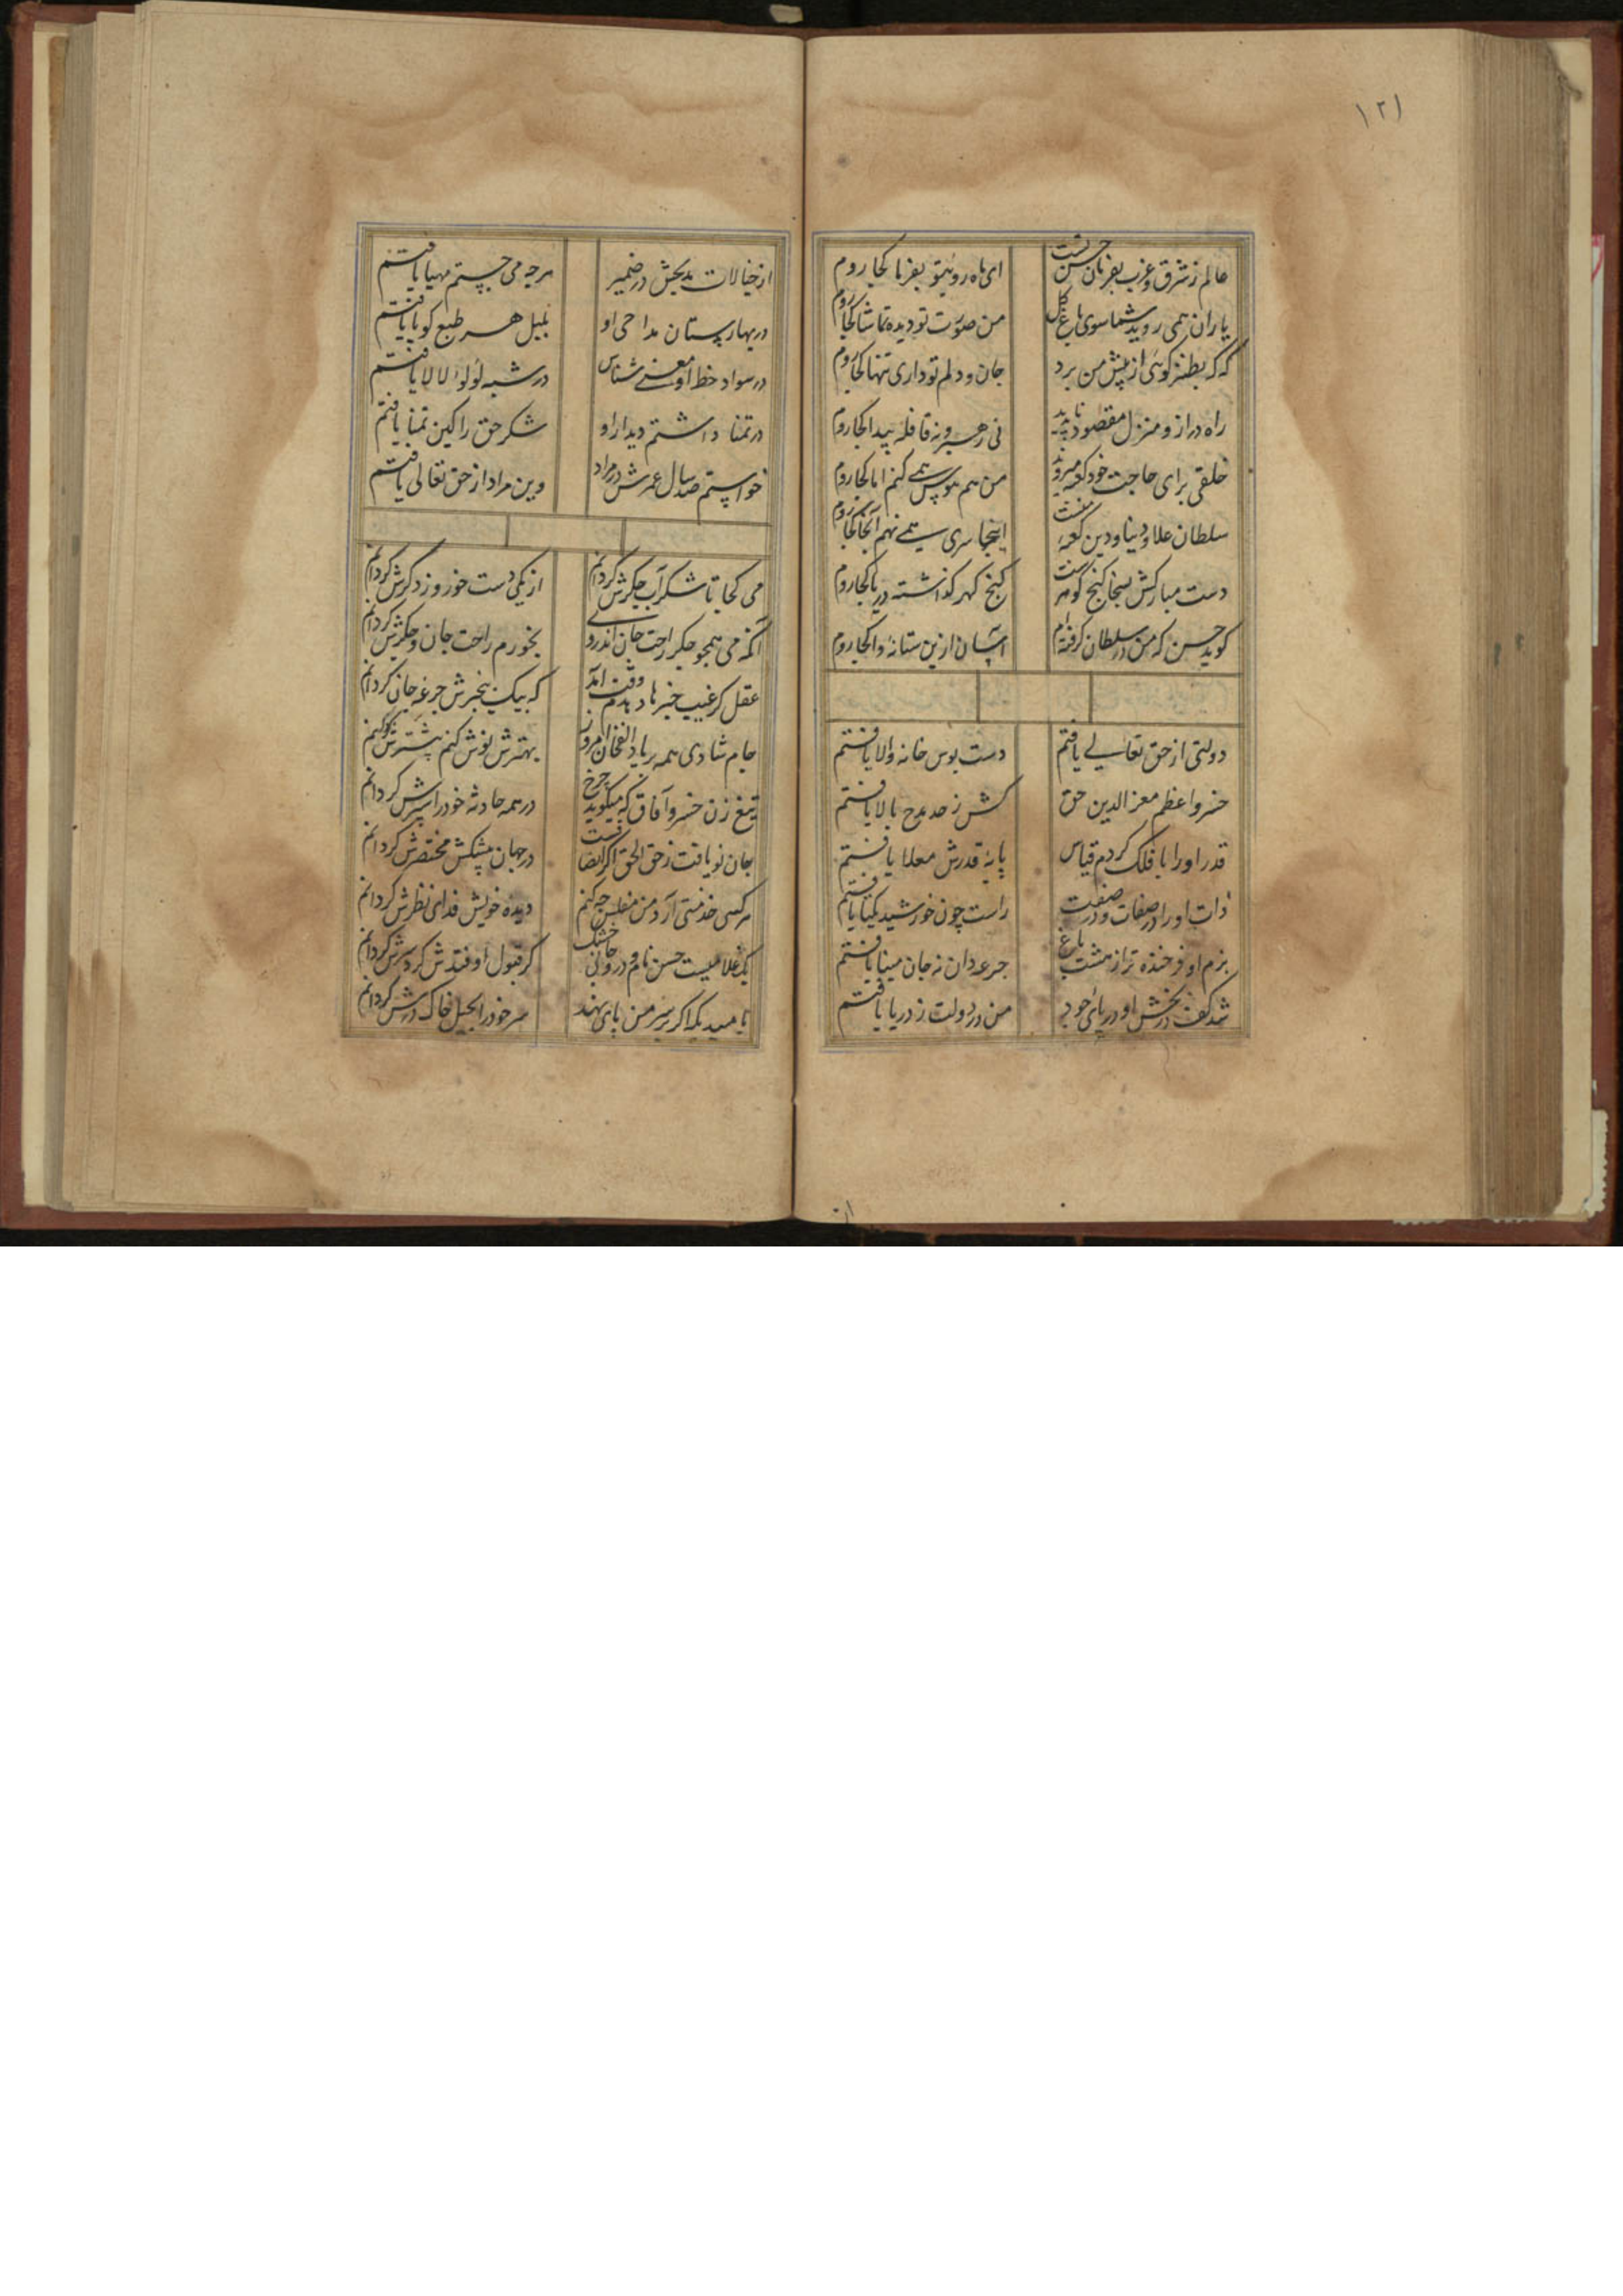 ۱۲۱
عالم ز شرق و غرب بفرمان حسن تست ای ماه رو بتو بفرما کجا روم
یاران همی روید شما سوی باغ گل من صورت تو دیده تماشا کجا روم
که که بطنز کوئی از پیش من برو جان و دلم تو داری تنها کجا روم
راه دراز و منزل مقصود ناپدید نی رهبر و نه قافله پیدا کجا روم
خلقی برای حاجت خود کعبه میروند من هم هوس همی کنم اما کجا روم
سلطان علاء دنیا و دین کعبه منست اینجا سری همی نهم آنجا کجا روم
دست مبارکش بسخا کنج کوهر ست کنج کهر کذاشته دریا کجا روم
کوید حسن که من در سلطان کرفته ام آسان ازین ستانه والا کجا روم
دولتی از حق تعالی یافتم دست بوس خانه والا یافتم
خسرو اعظم معز الدین حق کش ز حد مدح بالا یافتم
قدر او را با فلک کردم قیاس پایه قدرش معلا یافتم
ذات او را در صفات و در صفت راست چون خورشید یکتا یافتم
بزم او فرخنده تر از هشت باغ جرعه دان نه جان مینا یافتم
شد کف در بخش او دریای جود من در دولت ز دریا یافتم
از خیالات مدیحش در ضمیر هرچه می جستم مهیا یافتم
در بهارستان مداحی او بلبل هر طبع کویا یافتم
در سواد خط او معنی شناس در شبه لولو لالا یافتم
در تمنا داشتم دیدار او شکر حق را کین تمنا یافتم
خواستم صد سال عمرش در مراد وین مراد از حق تعالی یافتم
می کجا تا شکر آب جکرش کردانم از یکی دست خور و زد کرش کردانم
آنکه می همجو جکر راحت جان اندر وی بخورم راحت جان و جکرش کردانم
عقل کز غیب خبرها دهدم وقت آمد که بیک بیخبرش جرعه جان کردانم
جام شادی همه بر یاد الغخان امروز بهترش نوش کنم بیشترش نوکنم
تیغ زن خسرو آفاق که میکوید چرخ در همه حادثه خود را سپرش کردانم
جان نو یافت ز حق الحق اکر انصافست در جهان پیشکش مختصرش کردانم
هر کسی خدمتی آرد من مفلس چه کنم دیده خویش فدای نظرش کردانم
یک غلامیست حسن نام و درو جانی خشک کر قبول اوفتدش کرد سرش کردانم
بامید یک اکر بر سر من پای نهد سر خود را بحیل خاک درش کردانم
از